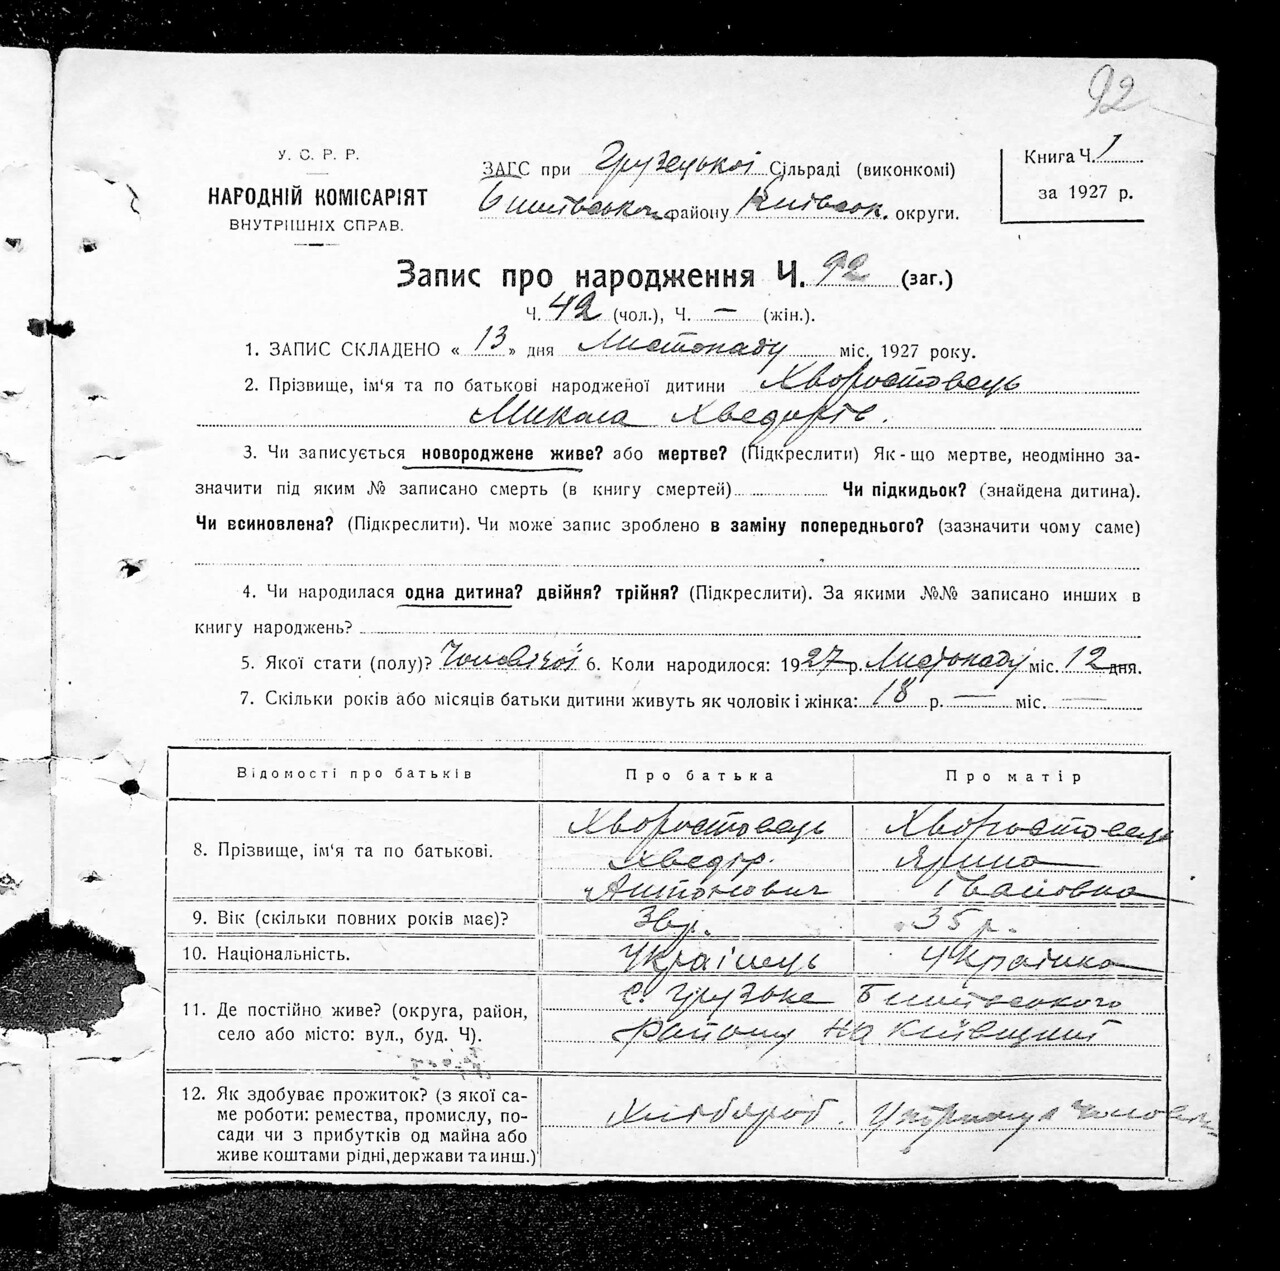 92
У. С. Р. Р.
НАРОДНІЙ КОМІСАРІЯТ
ВНУТРІШНІХ СПРАВ.
ЗАГС при Грузецькой Сільраді (виконкомі)
Бишівськом району Київськ. округи.
Книга Ч. 1
за 1927 р.
Запис про народження Ч. 92 (заг.)
Ч. 42 (чол.), Ч. — (жін.).
1. ЗАПИС СКЛАДЕНО « 13 » дня Листопаду міс. 1927 року.
2. Прізвище, ім'я та по батькові народженої дитини Хворостовець
Микола Хведорів.
3. Чи записується новороджене живе? або мертве? (Підкреслити) Як-що мертве, неодмінно за-
значити під яким № записано смерть (в книгу смертей) Чи підкидьок? (знайдена дитина).
Чи всиновлена? (Підкреслити). Чи може запис зроблено в заміну попереднього? (зазначити чому саме)
4. Чи народилася одна дитина? двійня? трійня? (Підкреслити). За якими №№ записано инших в
книгу народжень?
5. Якої стати (полу)? Чоловічої 6. Коли народилося: 1927 р. Листопаду міс. 12 дня.
7. Скільки років або місяців батьки дитини живуть як чоловік і жінка: 18 р. — міс. —
Відомості про батьків
Про батька
Про матір
8. Прізвище, ім'я та по батькові.
Хворостовець
Хведір
Антонович
Хворостовець
Ярина
Івановна
9. Вік (скільки повних років має)?
35 р.
10. Національність.
Українець
Українка
11. Де постійно живе? (округа, район,
село або місто: вул., буд. Ч).
с. Грузьке Бишівського
району на Київщині
12. Як здобуває прожиток? (з якої са-
ме роботи: ремества, промислу, по-
сади чи з прибутків од майна або
живе коштами рідні, держави та инш.)
Хлібороб.